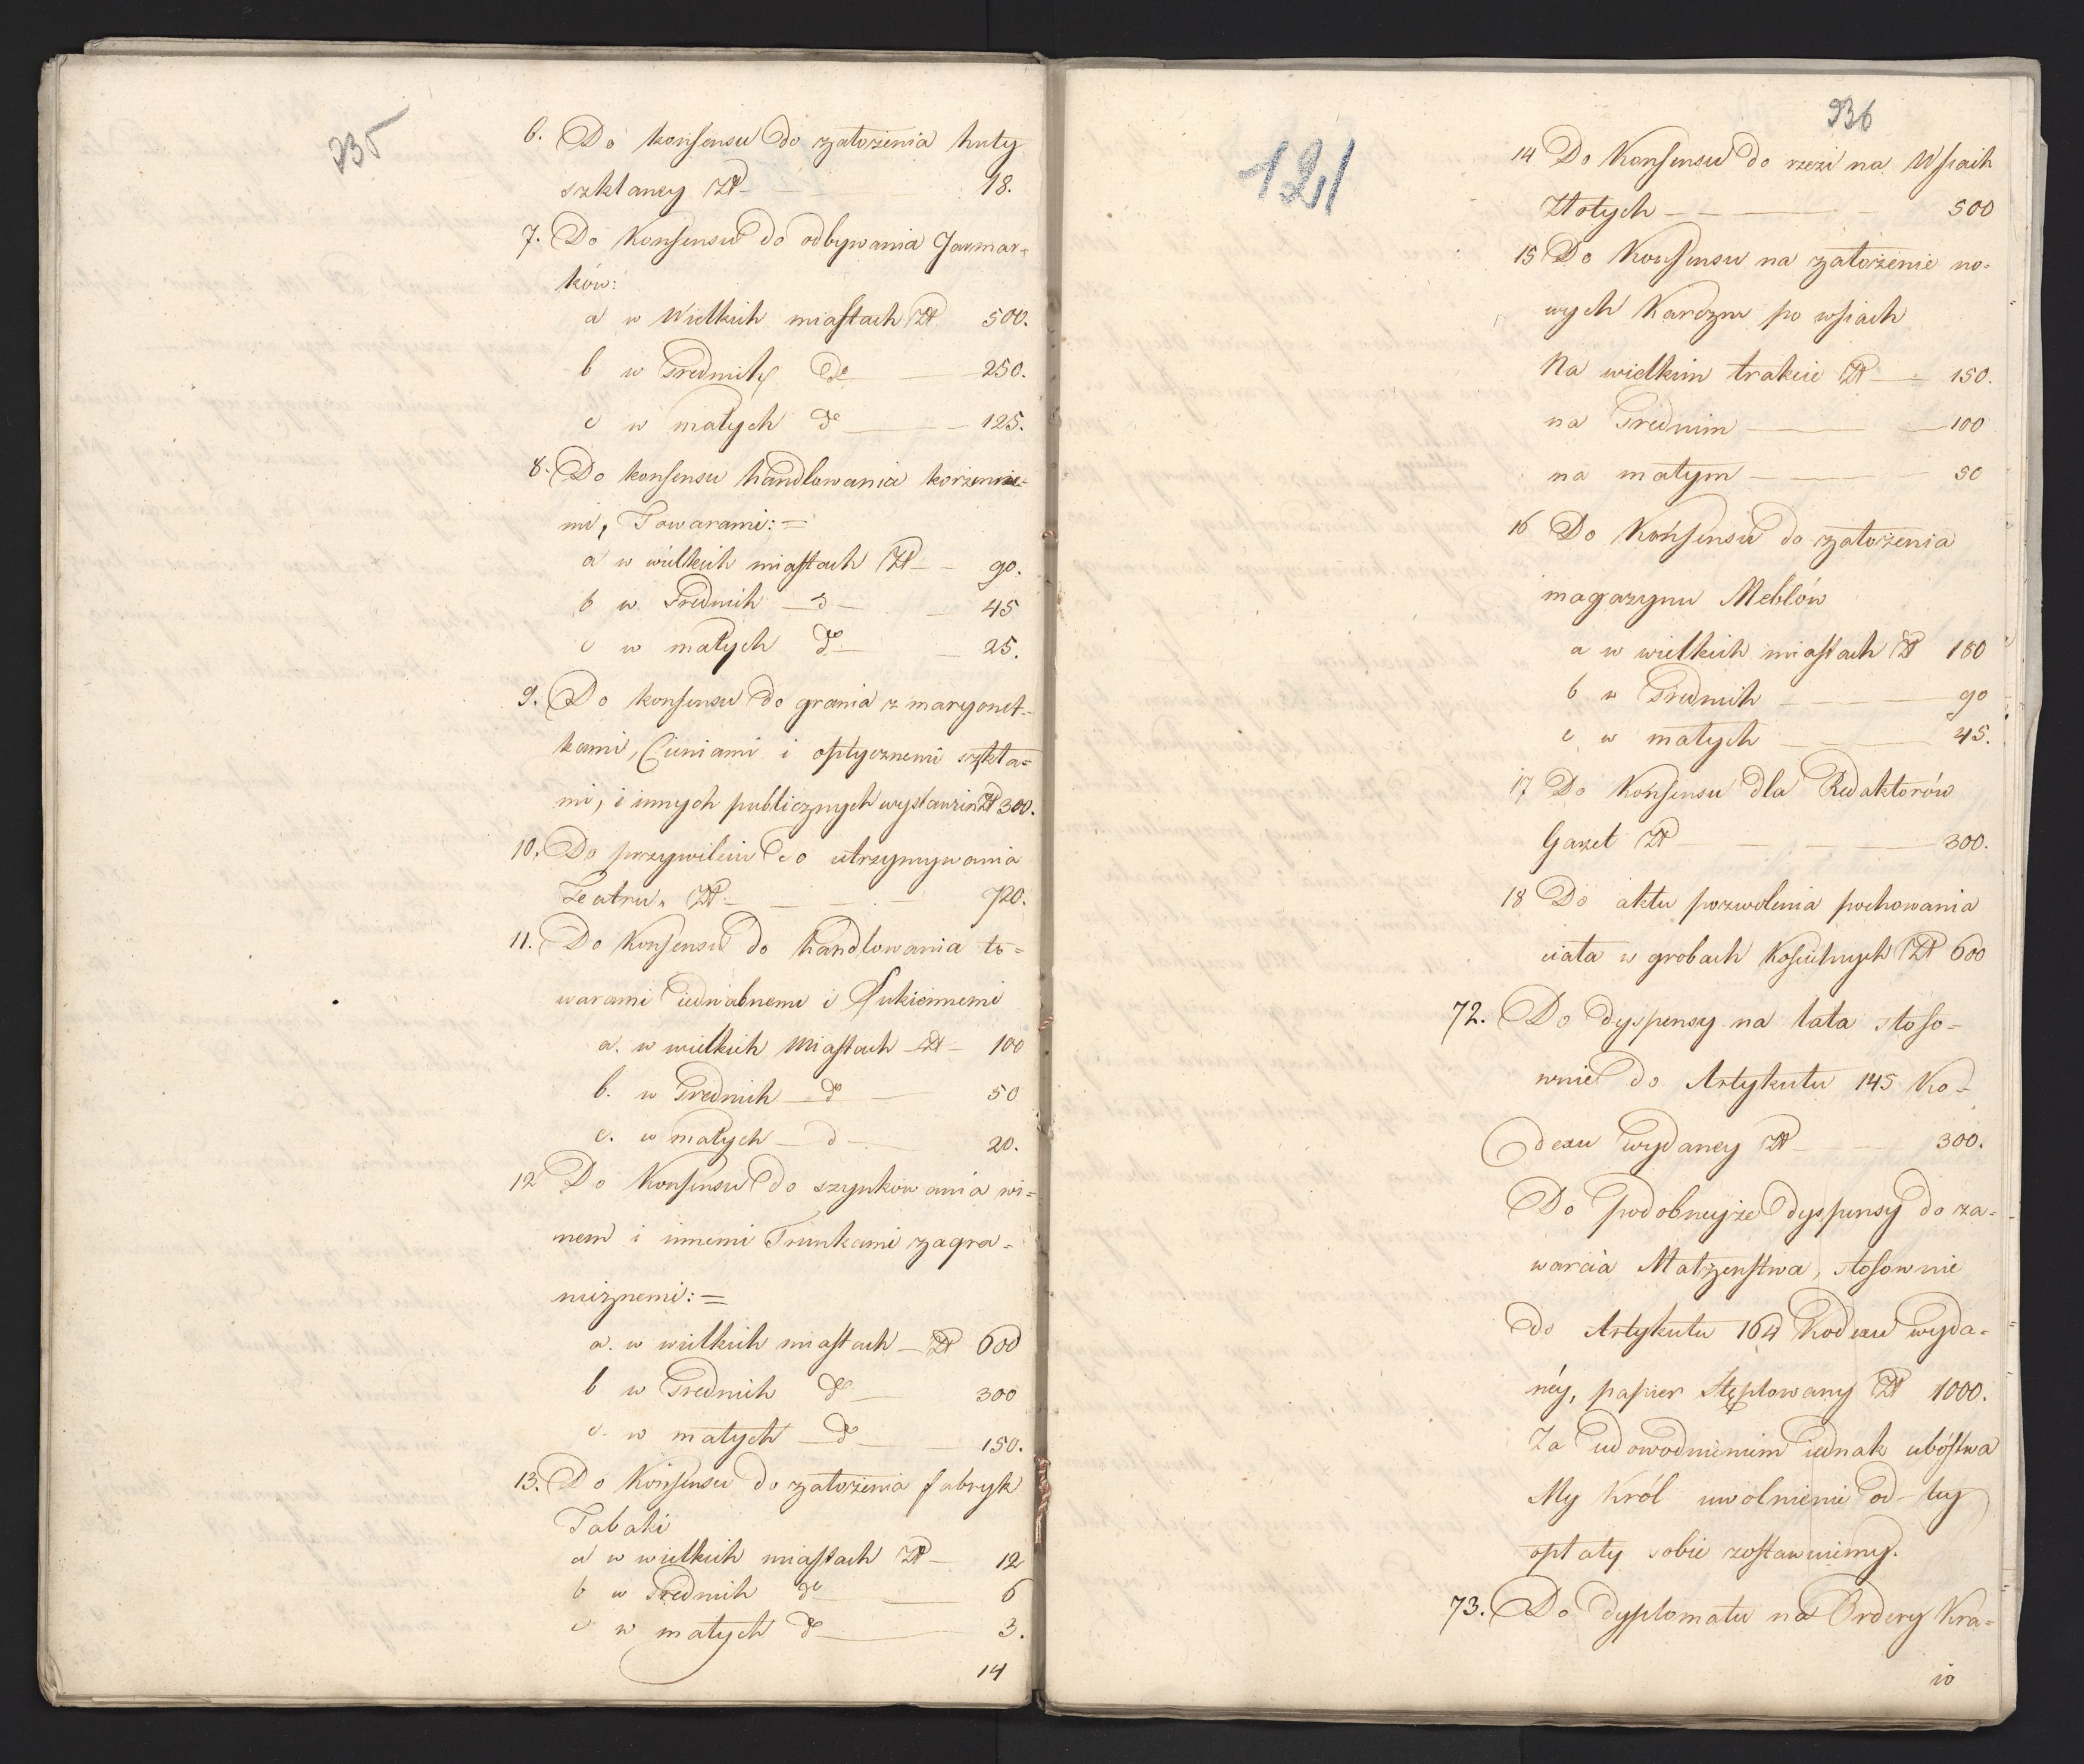 235
6. Do konsensu do założenia huty
szklaney Zł 18.
7. Do Konsensu do odbywania Jarmar-
ków:
a w Wielkich miastach Zł 500.
b w Srednich do 250.
c w małych do 125.
8. Do konsensu handlowania korzenne-
mi, Towarami:=
a w wielkich miastach Zł 90.
b w Srednich d 45
c w małych do 25.
9. Do konsensu do grania z maryonet-
kami, Cieniami i optycznemi szkła-
mi, i innych publicznych wystawień Zł 300.
10. Do przywileiu do utrzymywania
Teatru. Zł 720.
11. Do Konsensu do handlowania to-
warami iedwabnemi i Sukiennemi
a. w wielkich Miastach Zł 100
b. w Srednich do 50
c. w małych d 20.
12 Do Konsensu do szynkowania wi-
nem i innemi Trunkami zagra-
nicznemi:=
a. w wielkich miastach Zł 600
b w Srednich do 300
c. w małych do 150.
13. Do Konsensu do założenia fabryk
Tabaki
a w wielkich miastach Zł 12
b w Srednich do 6
c w małych do 3.
14
936
121
14 Do Konsensu do rzezi na Wsiach
Złotych 500
15 Do Konsensu na założenie no-
wych Karczm po wsiach
Na wielkim trakcie Zł 150.
na Srednim 100
na małym 50
16 Do Konsensu do założenia
magazynu Meblów
a w wielkich miastach Zł 180
b w Srednich 90
c w małych 45.
17 Do Konsensu dla Redaktorów
Gazet Zł 300.
18 Do aktu pozwolenia pochowania
ciała w grobach Kościelnych Zł 600
72. Do dyspensy na lata stoso-
wnie do Artykułu 145 Ko-
dexu wydaney Zł 300.
Do podobneyże dyspensy do za-
warcia Małżenstwa, stosownie
do Artykułu 164 Kodexu wyda-
néy, papier stęplowany Zł 1000.
Za udowodnieniem iednak ubóstwa
My Król uwolnienie od tey
opłaty sobie zostawuiemy.
73. Do dyplomatu na Ordery Kra-
io